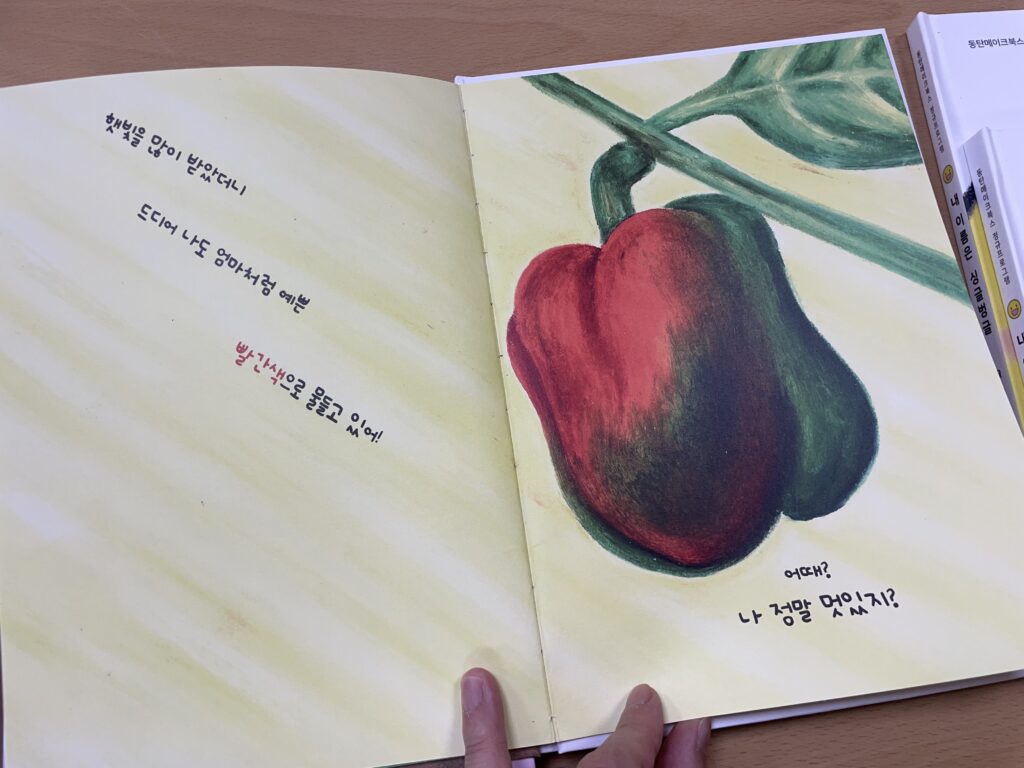 햇빛을 많이 받았더니
드디어 나도 엄마처럼 예쁜
빨간색으로 물들고 있어!
어때?
나 정말 멋있지?
동탄메이크북스
동탄메이크북스 정규프로그램
내 이름은 싱글벙글
동탄메이크북스 정규프로그램
내